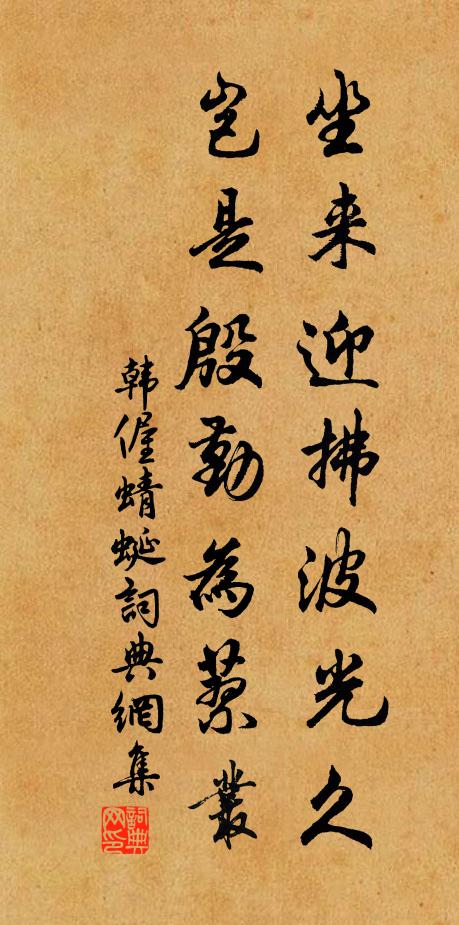 坐来迎拂波光久
岂是殷勤為蓼叢
韩偓蜻蜓詞典網集
詞典网印